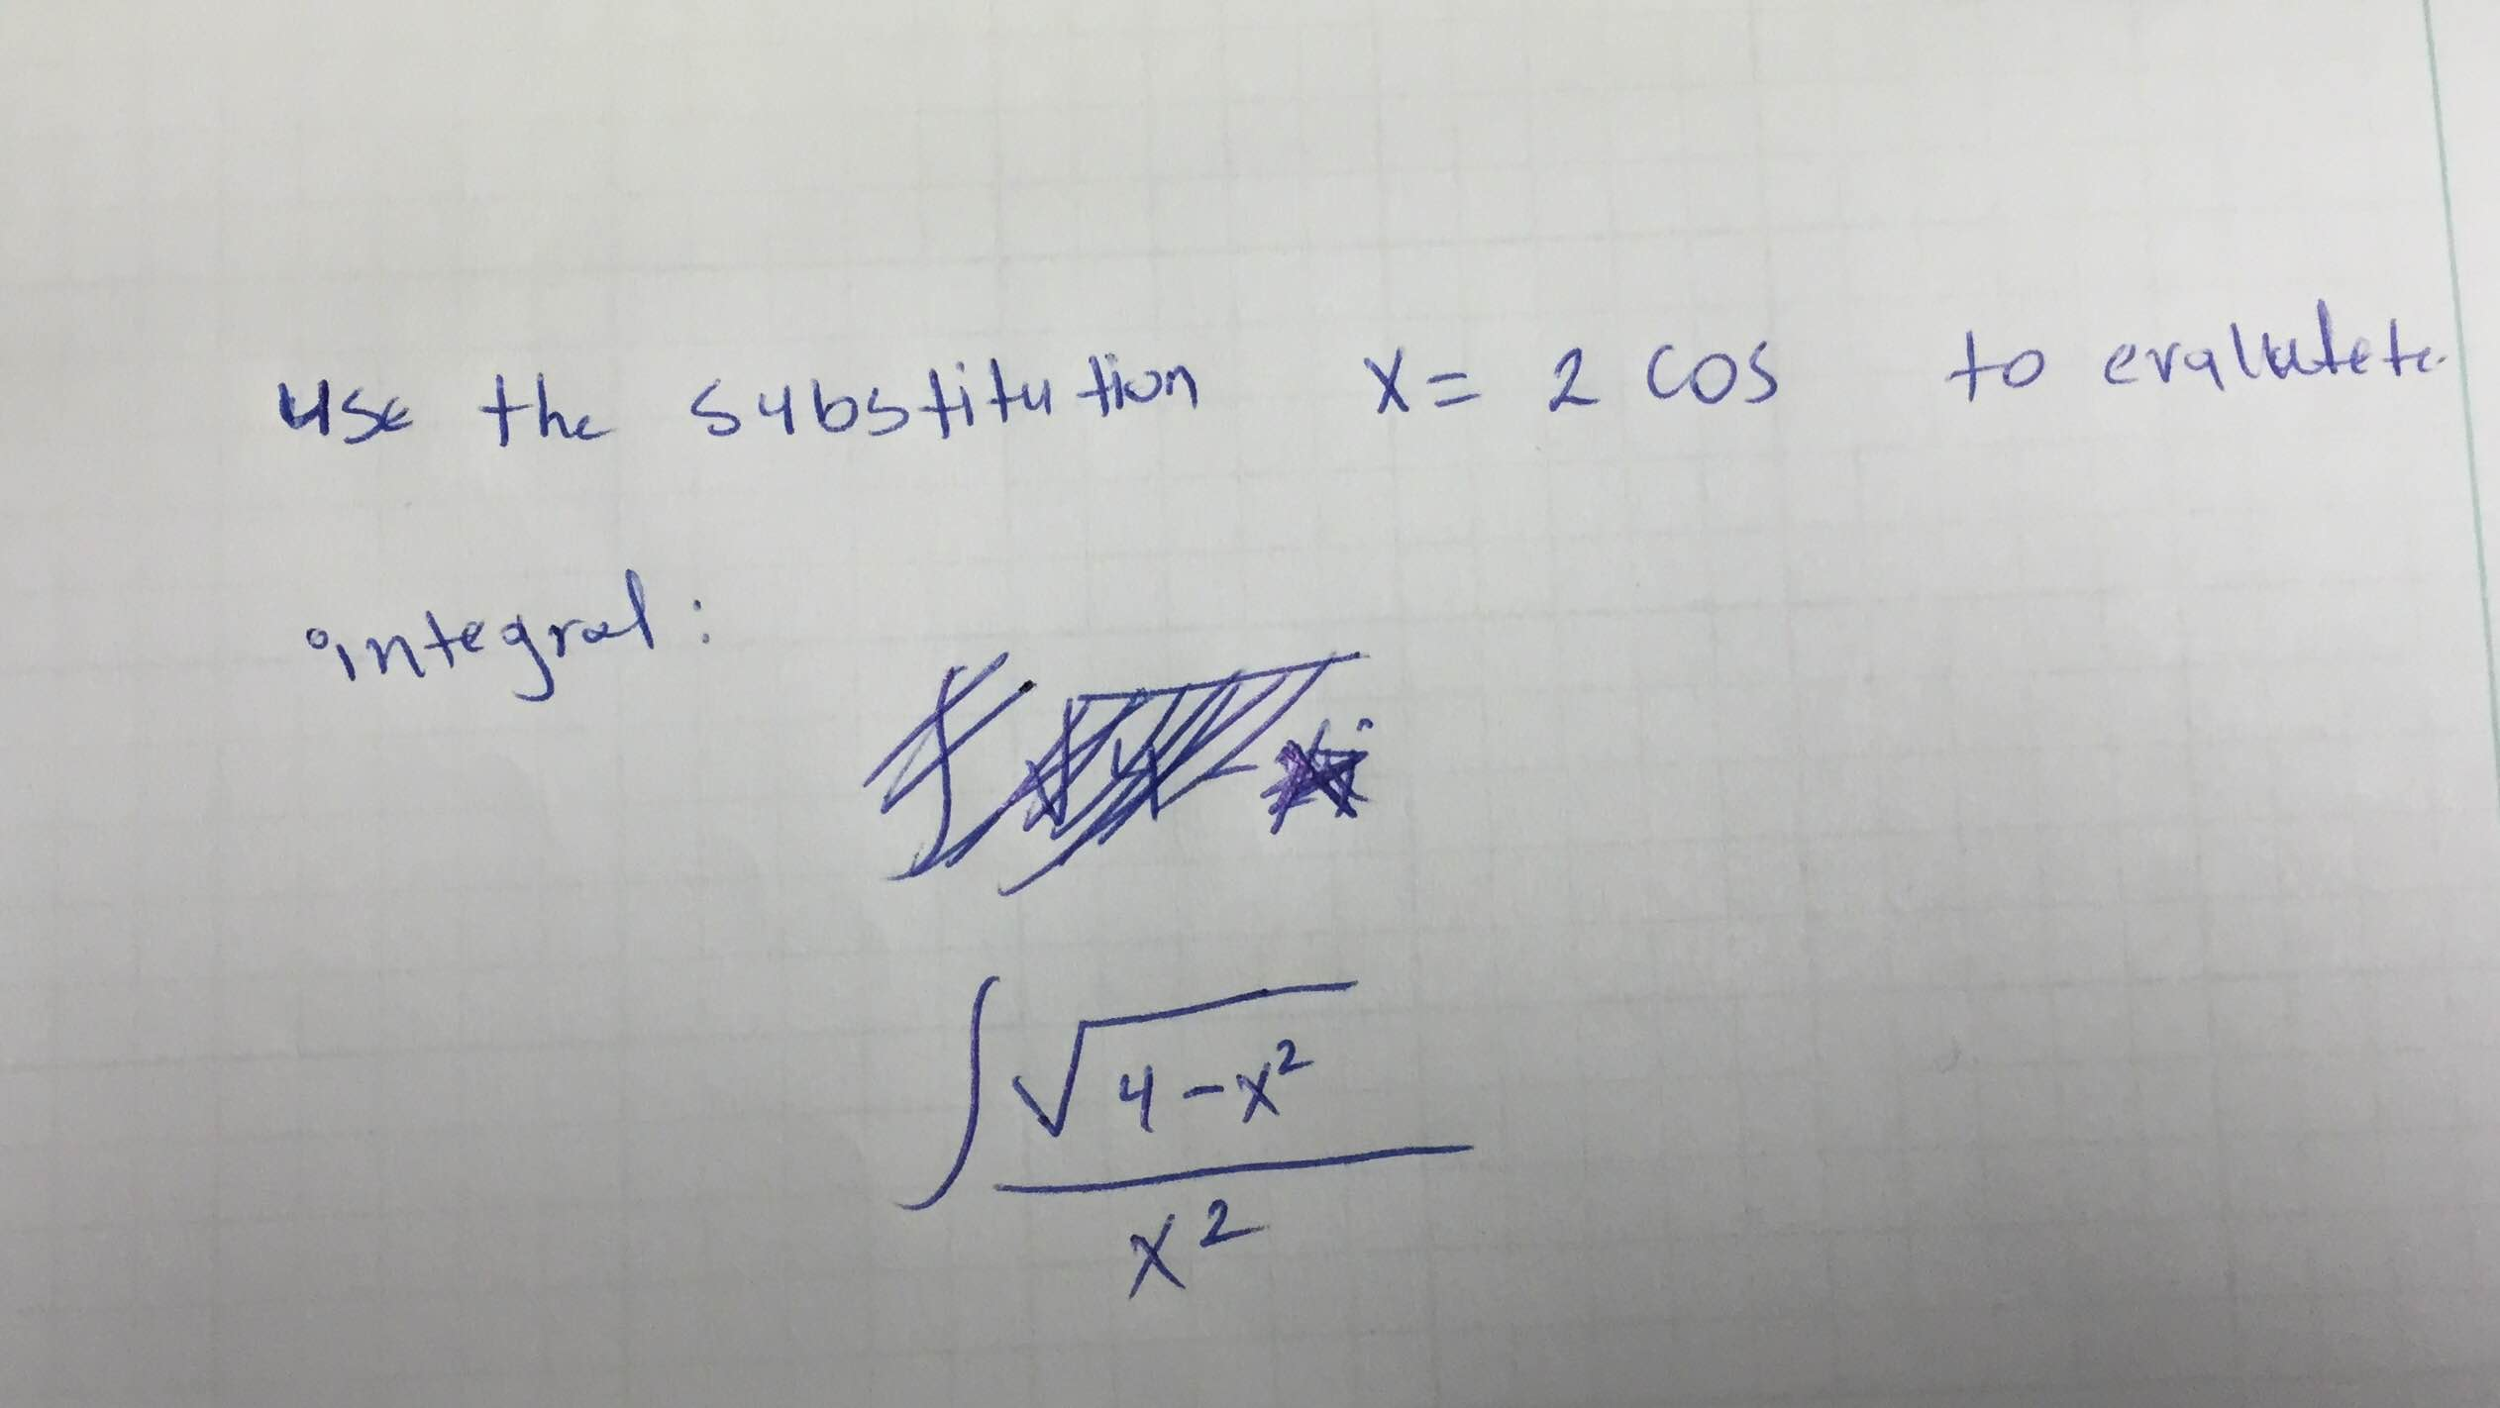 use the substitution x = 2 cos to evalutete
integral:
∫ √(4 - x²) / x²